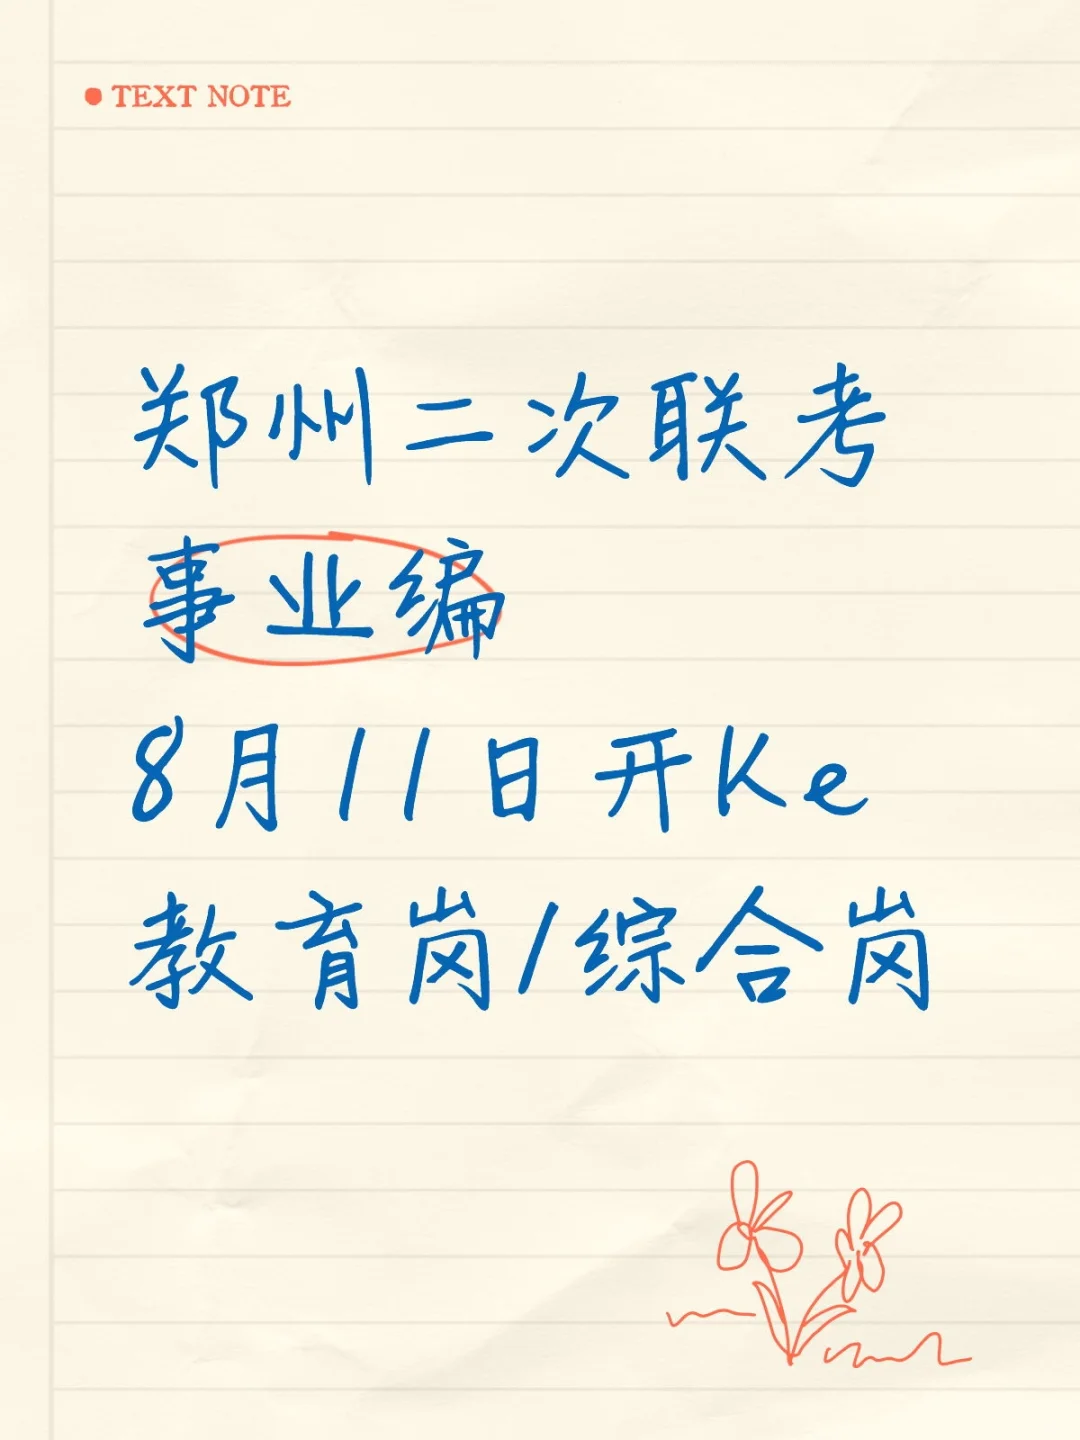 TEXT NOTE
郑州二次联考
事业编
8月11日开Ke
教育岗/综合岗